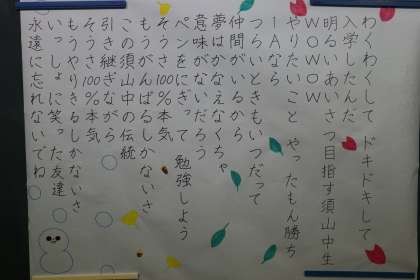 わくわくして ドキドキして
入学したんだ
明るいあいさつ目指す須山中生
WOWWOW
やりたいこと やったもん勝ち
1Aなら
つらいときもいつだって
仲間がいるから
夢はかなえなくちゃ
意味がないだろう
ペンをにぎって 勉強しよう
そうさ100%本気
もうがんばるしかないさ
この須山中の伝統
引き継ぎながら
そうさ100%本気
もうやりきるしかないさ
いっしょに笑った友達
永遠に忘れないでね